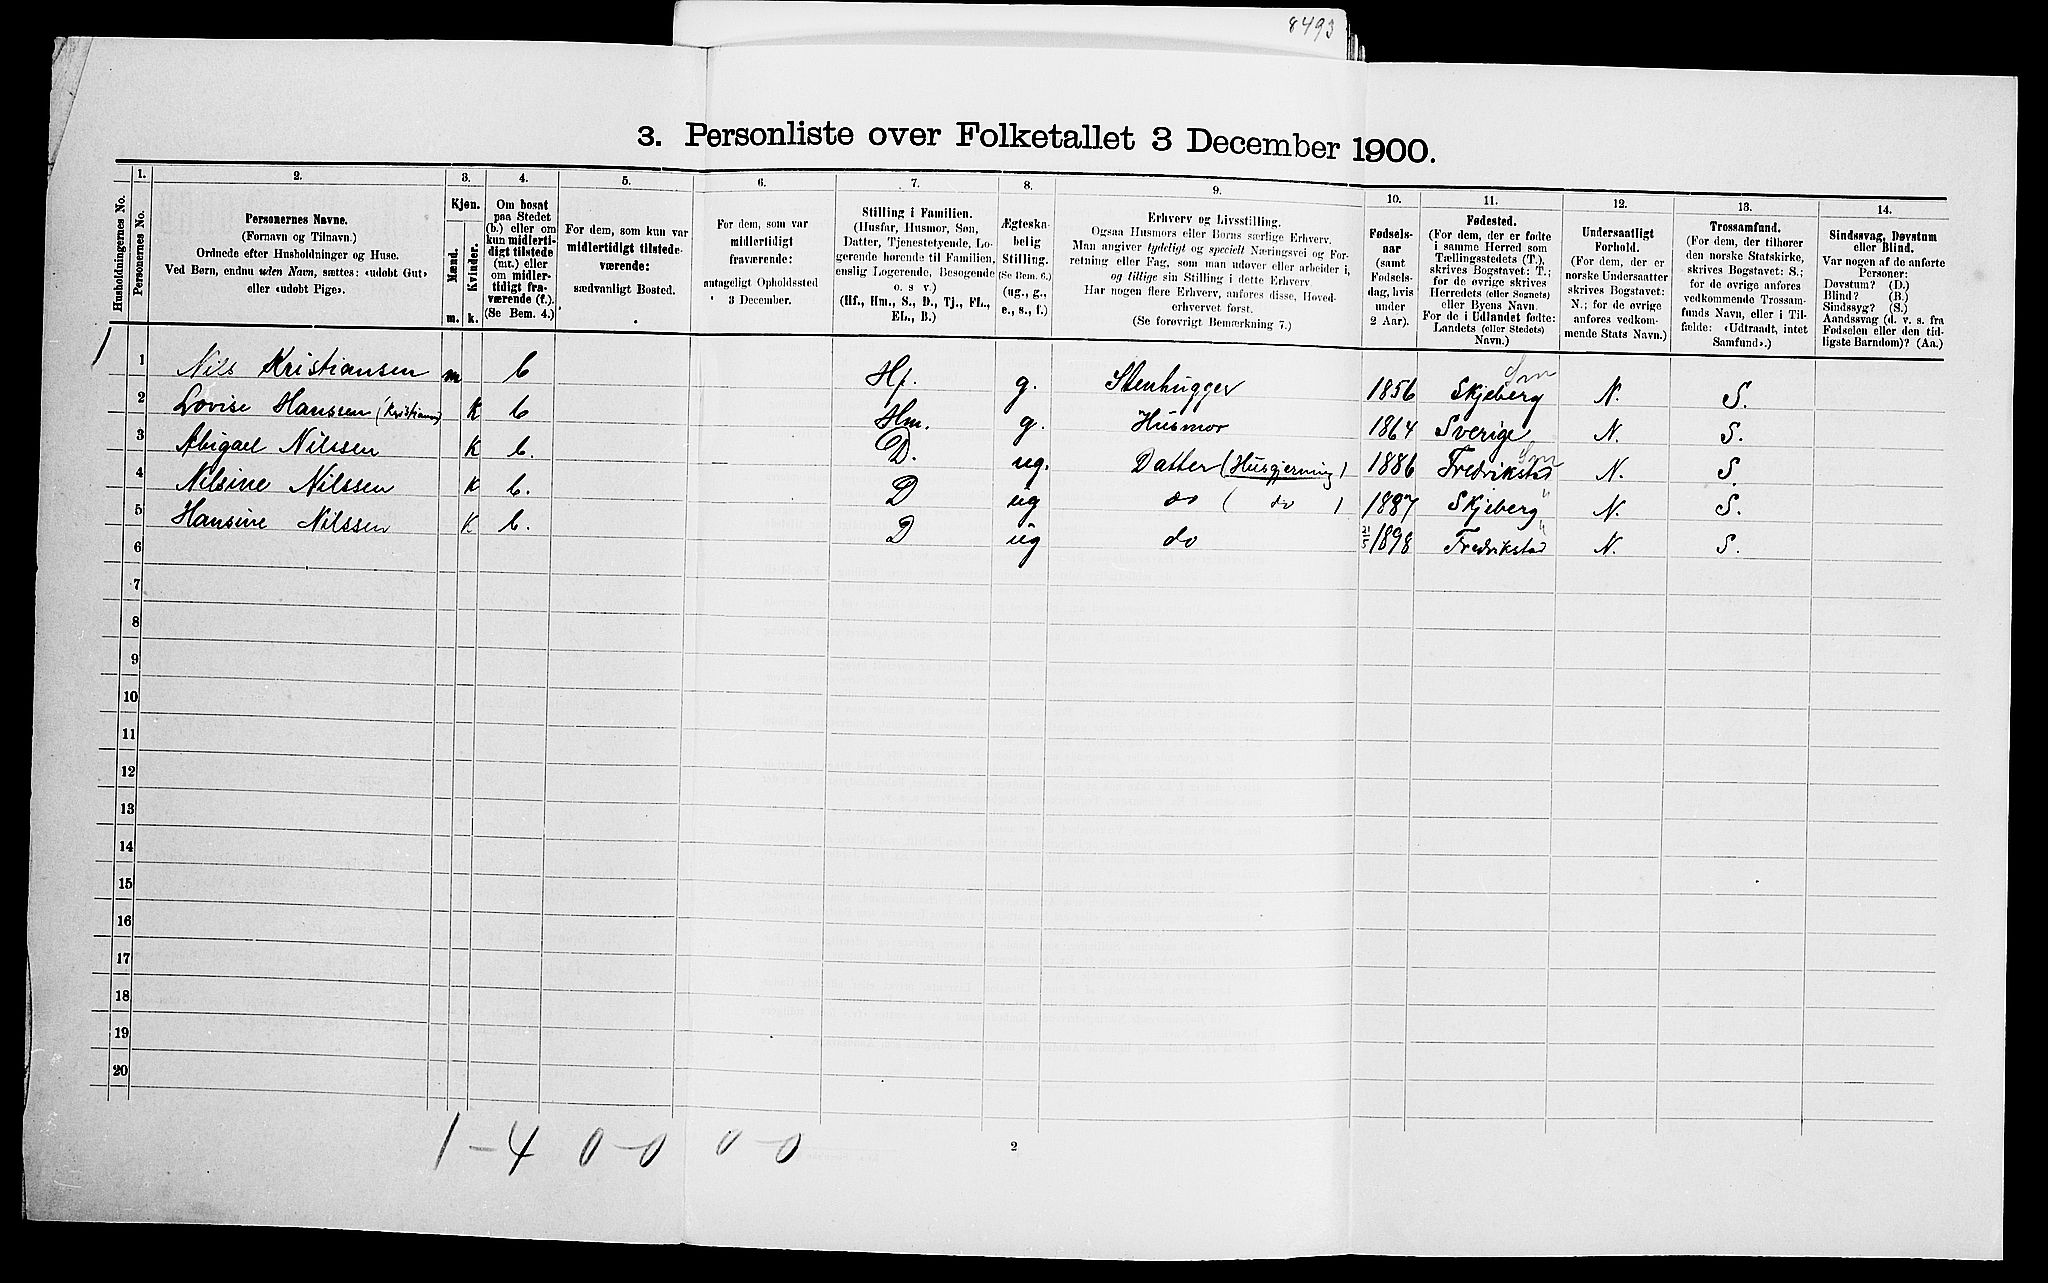 8493
3. Personliste over Folketallet 3 December 1900.
Husholdningernes No.
1.
Personernes No.
2.
Personernes Navne.
(Fornavn og Tilnavn.)
Ordnede efter Husholdninger og Huse.
Ved Børn, endnu uden Navn, sættes: «udobt Gut»
eller «udobt Pige».
3.
Kjøn.
Mænd.
Kvinder.
m.
k.
4.
Om bosat
paa Stedet
(b.) eller om
kun midlerti-
digt tilstede
(mt.) eller
om midler-
tidigt fra-
værende (f.).
(Se Bem. 4.)
5.
For dem, som kun var
midlertidigt tilstede-
værende:
sædvanligt Bosted.
6.
For dem, som var
midlertidigt
fraværende:
antageligt Opholdssted
3 December.
7.
Stilling i Familien.
(Husfar, Husmor, Søn,
Datter, Tjenestetyende, Lo-
gerende hørende til Familien,
enslig Logerende, Besøgende
o. s v.)
(Hf., Hm., S., D., Tj., FL.,
EL., B.)
8.
Ægteska-
belig
Stilling.
(Se Bem. 6.)
(ug., g.,
e., s., f.)
9.
Erhverv og Livsstilling.
Ogsaa Husmors eller Børns særlige Erhverv.
Man angiver tydeligt og specielt Næringsvei og For-
retning eller Fag, som man udøver eller arbeider i,
og tillige sin Stilling i dette Erhverv
Har nogen flere Erhverv, anføres disse, Hoved-
erhvervet først.
(Se forøvrigt Bemærkning 7.)
10.
Fødsels-
aar
(samt
Fødsels-
dag, hvis
under
2 Aar).
11.
Fødested.
(For dem, der er fødte
i samme Herred som
Tællingsstedets (T.),
skrives Bogstavet: T.;
for de øvrige skrives
Herredets (eller Sognets)
eller Byens Navn
For de i Udlandet fødte:
Landets (eller Stedets)
Navn.)
12.
Undersaatligt
Forhold.
(For dem, der er
norske Undersaatter
skrives Bogstavet:
N.; for de øvrige
anføres vedkom-
mende Stats Navn.)
13.
Trossamfund.
(For dem, der tilhører
den norske Statskirke,
skrives Bogstavet: S.;
for de øvrige anføres
vedkommende Trossam-
funds Navn, eller i Til-
fælde: «Udtraadt, intet
Samfund».)
14.
Sindssvag, Døvstum
eller Blind.
Var nogen af de anførte
Personer:
Døvstum? (D.)
Blind? (B.)
Sindssyg? (S.)
Aandssvag (d. v. s. fra
Fødselen eller den tid-
ligste Barndom)? (Aa.)
1 1 Nils Kristiansen m b Hf. g. Stenhugger 1856 Skjeberg N. S.
2 Lovise Hanssen (Kristians) K b Hm. g. Husmor 1864 Sverige N. S.
3 Abigael Nilssen K b. D. ug. Datter (Husgjerning) 1886 Fredrikstad N. S.
4 Nilsine Nilssen K b. D ug do ( do ) 1887 Skjeberg N. S.
5 Hansine Nilssen K b. D ug do 21/5 1898 Fredrikstad N. S.
6
7
8
9
10
11
12
13
14
15
16
17
18
19
20
1-4 0-0 0-0
2